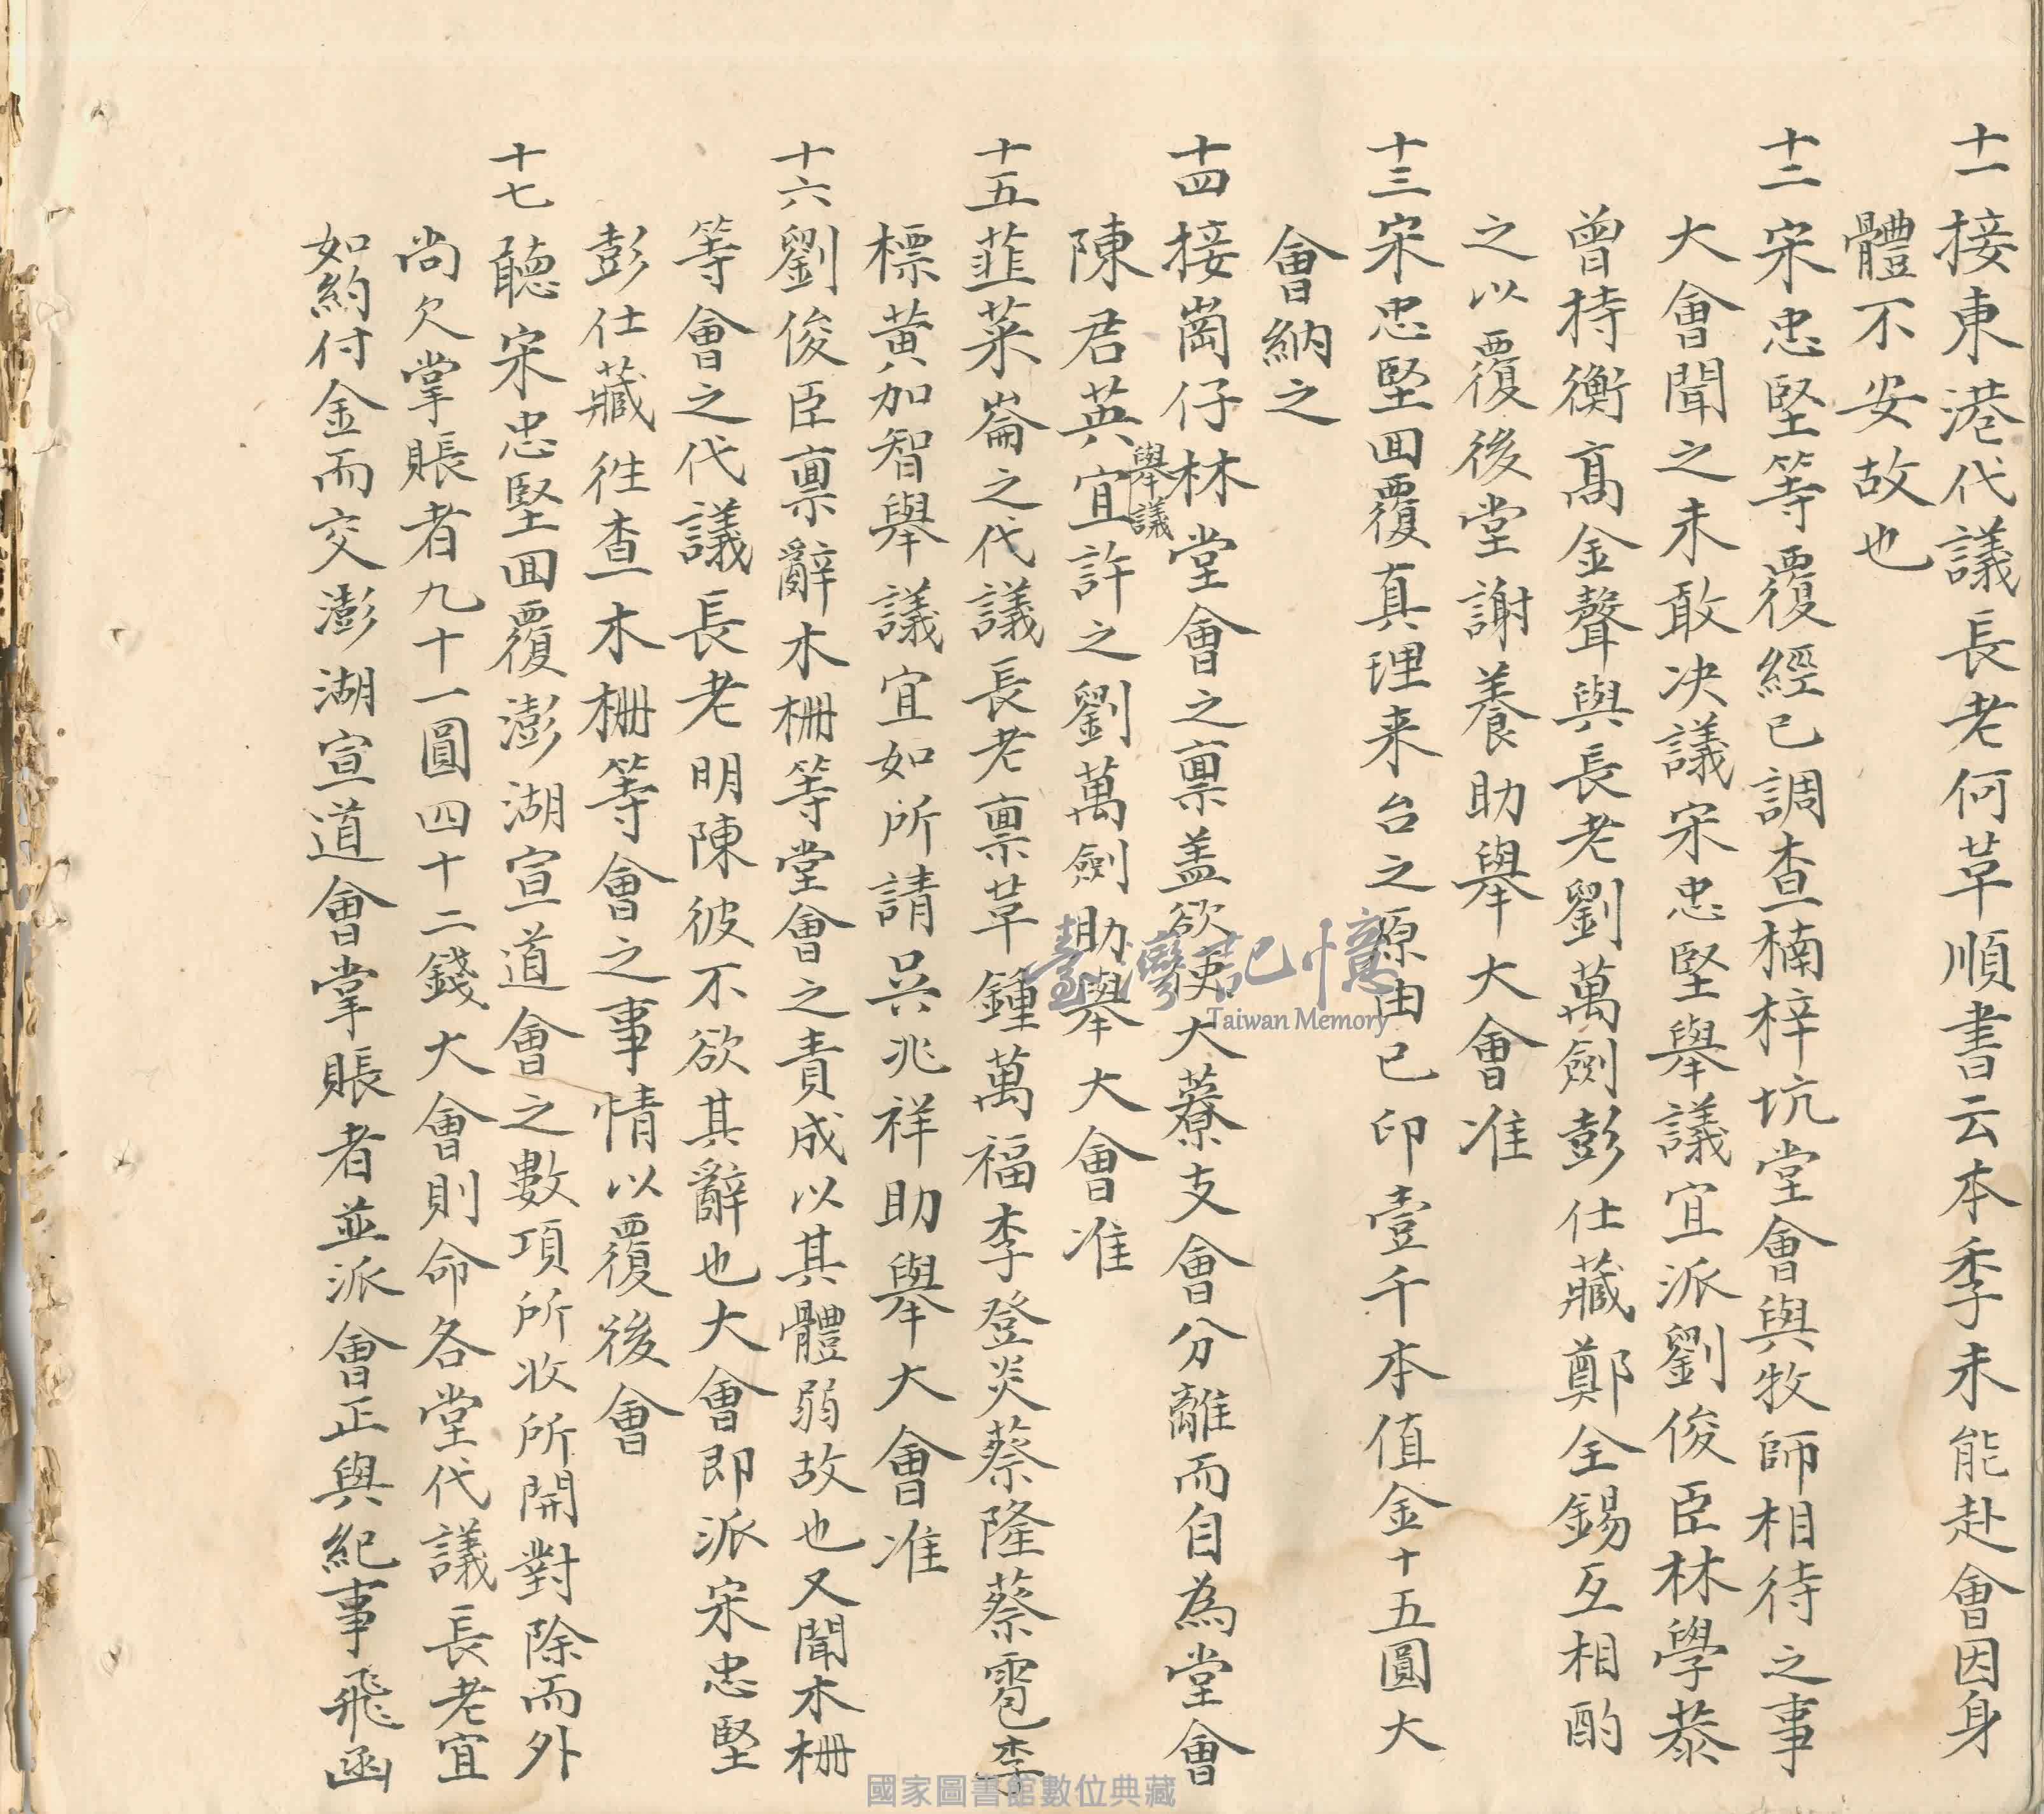 十一接東港代議長老何草順書云本季未能赴會因身
體不安故也
十二宋忠堅等覆經已調查楠梓坑堂會與牧師相待之事
大會聞之未敢决議宋忠堅舉議宜派劉俊臣林學恭
曾持衡髙金聲與長老劉萬劍彭仕藏鄭全錫互相酌
之以覆後堂謝養助舉大會准
十三宋忠堅回覆真理来台之原由已印壹千本值金十五圓大
會納之
十四接崗仔林堂會之禀盖欲使大藔支會分離而自為堂會
陳君英舉議宜許之劉萬劍助舉大會准
十五韮菜崙之代議長老禀草鍾萬福李登炎蔡隆蔡雹李
標黃加智舉議宜如所請吳兆祥助舉大會准
十六劉俊臣禀辭木柵等堂會之責成以其體弱故也又聞木柵
等會之代議長老明陳彼不欲其辭也大會即派宋忠堅
彭仕藏往查木柵等會之事情以覆後會
十七聽宋忠堅回覆澎湖宣道會之數項所收所開對除而外
尚欠掌賬者九十一圓四十二錢大會則命各堂代議長老宜
如約付金而交澎湖宣道會掌賬者並派會正與紀事飛函
臺灣記憶
Taiwan Memory
國家圖書館數位典藏